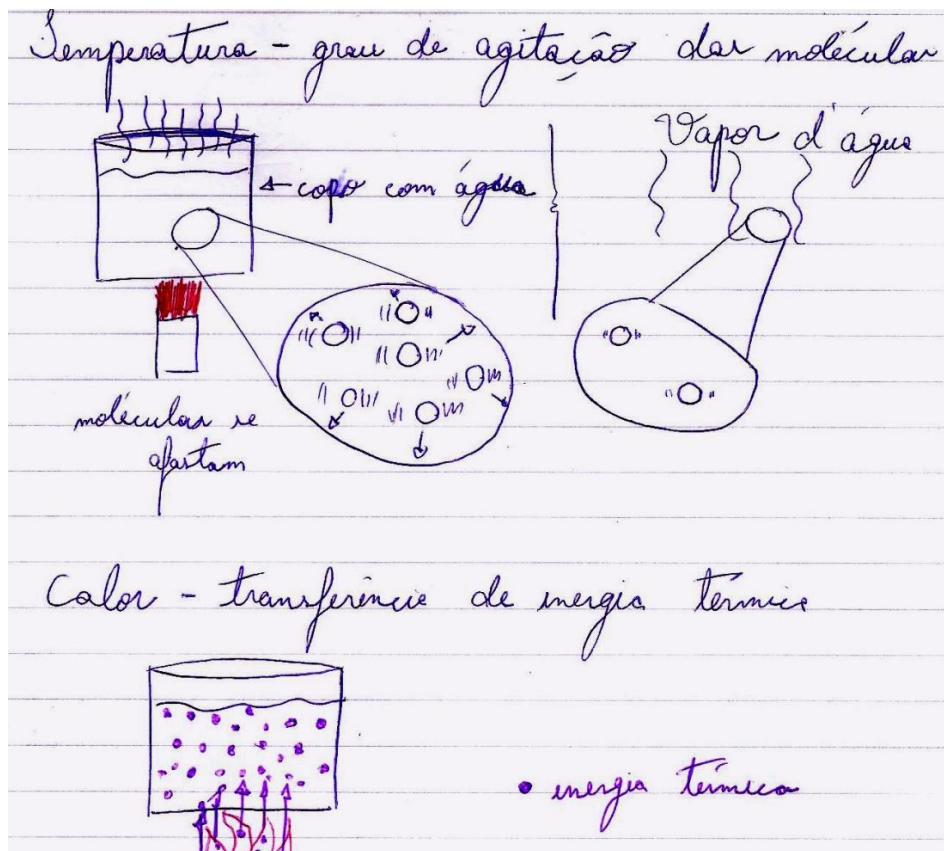 Temperatura - grau de agitação das moléculas
Vapor d'água
copo com água
moléculas se
afastam
Calor - transferência de energia térmica
energia térmica